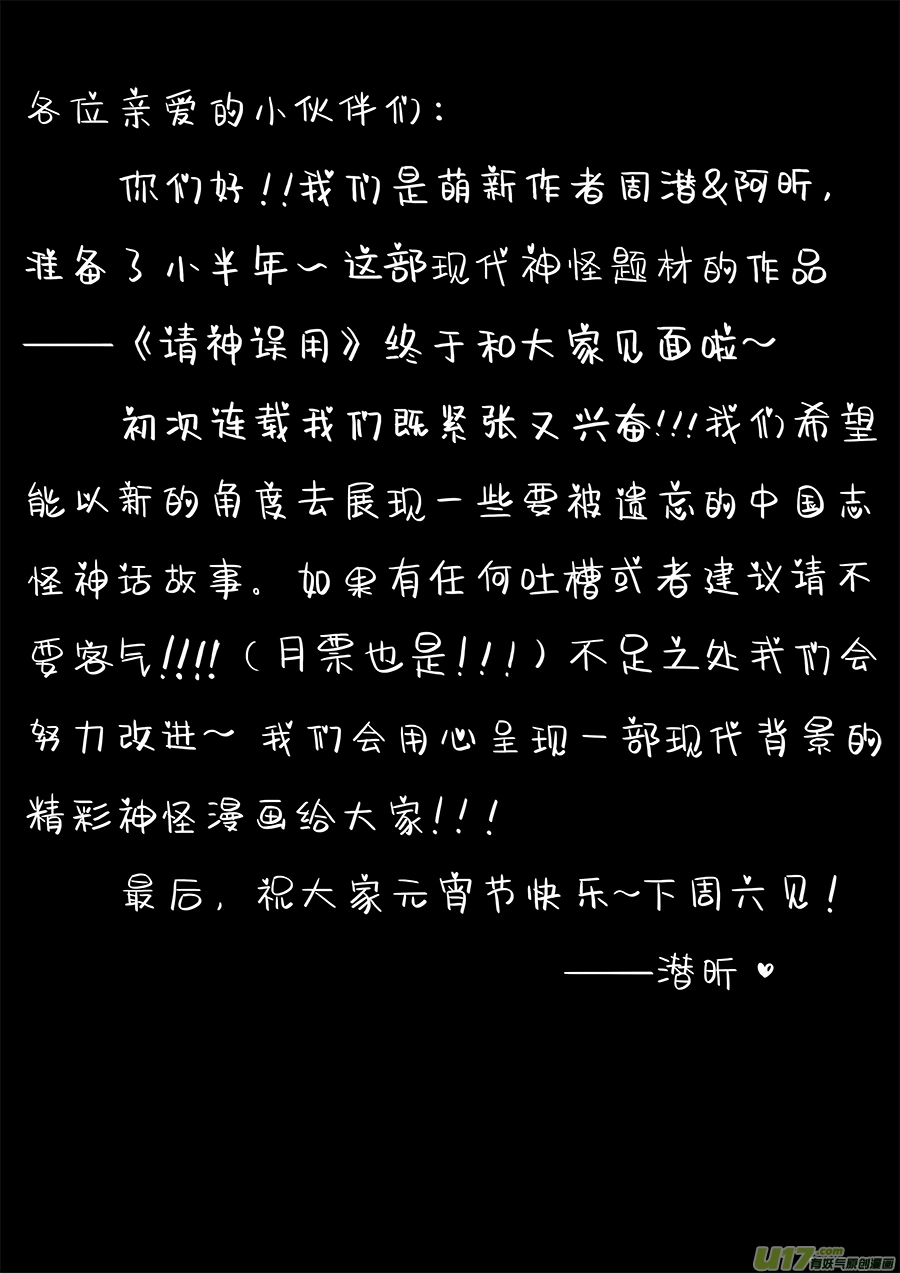 各位亲爱的小伙伴们：
你们好！！我们是萌新作者周潜&阿昕，
准备了小半年～这部现代神怪题材的作品
——《请神误用》终于和大家见面啦～
初次连载我们既紧张又兴奋!!!我们希望
能以新的角度去展现一些要被遗忘的中国志
怪神话故事。如果有任何吐槽或者建议请不
要客气!!!!（月票也是!!!）不足之处我们会
努力改进～ 我们会用心呈现一部现代背景的
精彩神怪漫画给大家!!!
最后，祝大家元宵节快乐~下周六见！
——潜昕 ♥
U17.com
有妖气原创漫画